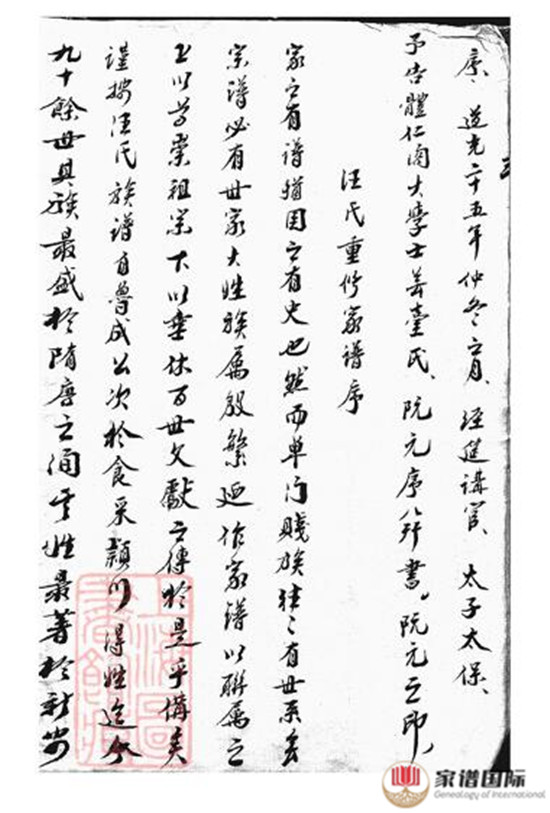 序、道光二十五年仲冬之月、經筵講官、太子太保、
予告體仁阁大學士芸臺氏、阮元序并書。阮元之印、
汪氏重修家谱序
家之有谱猶国之有史也然而单门賤族往々有世系无
宗谱必有世家大姓族属殷繁廼作家谱以聯属之
上以尊崇祖宗下以垂休百世文獻之傳於是乎備矣
谨按汪氏族谱自魯成公次於食采潁川得姓迄今
九十餘世其族最盛於隋唐之间其姓最著於新安
上海圖書館藏
家谱国际
Genealogy of International